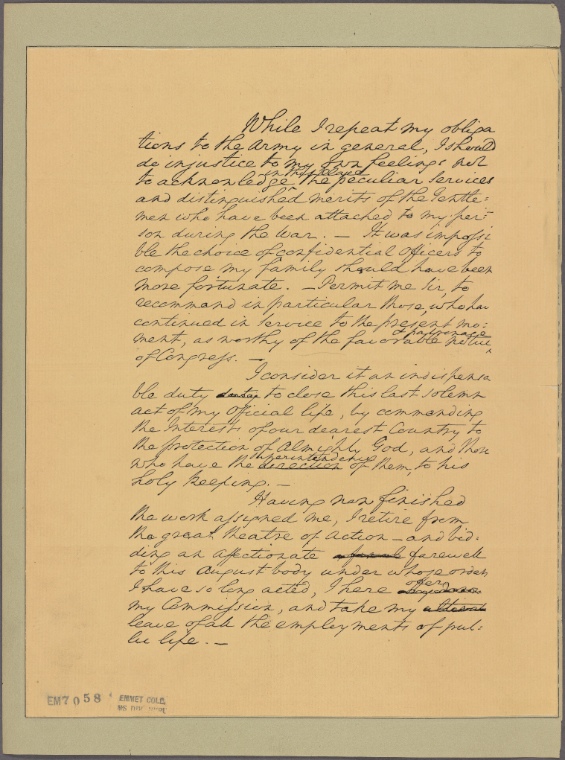 While I repeat my obliga
tions to the Army in general, I should
do injustice to my own feelings not
in this place
to acknowledge the peculiar services
and distinguished merits of the Gentle:
men who have been attached to my per:
son during the war. — It was impossi
ble the choice of confidential Officers to
compose my family should have been
more fortunate. — Permit me Sir, to
recommend in particular those, who ha
continued in service to the present mo:
& patronage
ment, as worthy of the favorable notice
of Congress. —
I consider it an indispensa
ble duty duty to close this last solemn
act of my Official life, by commending
the Interests of our dearest Country to
the protection of Almighty God, and those
superintendence
who have the direction of them, to his
holy keeping. —
Having now finished
the work assigned me, I retire from
the great theatre of Action — and bid:
ding an affectionate a final farewell
to this August body under whose orders
offer
I have so long acted, I here
my Commission, and take my ultimate
leave of all the employments of pub:
lic life. —
EM7058
EMMET COLL.